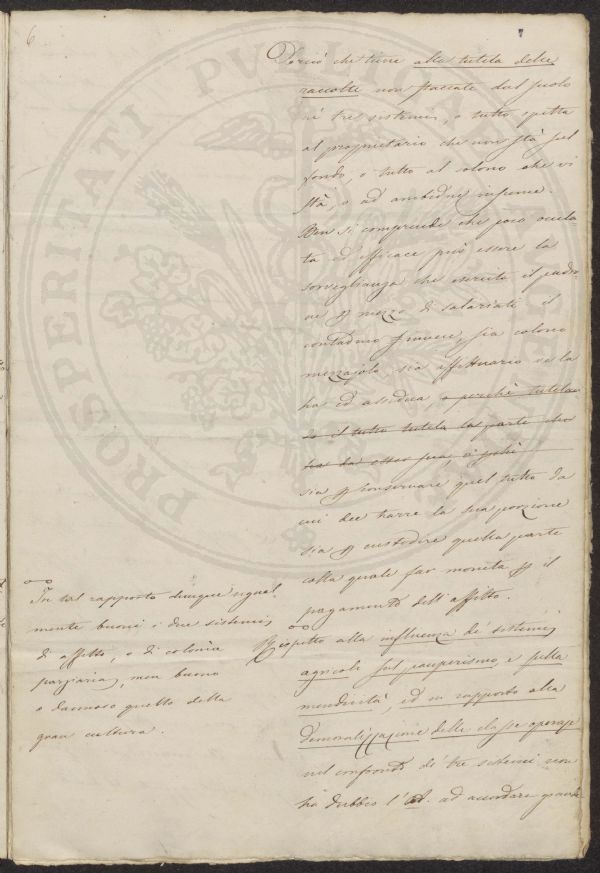 6
7
Perciò che tiene alla tutela delle
raccolte non staccate dal suolo
nè tre sistemi, o tutto spetta
al proprietario che non stà sul
fondo, o tutto al colono che vi
stà, o ad ambedue insieme.
Ben si comprende che poco ocula-
ta ed efficace può essere la
sorveglianza che esercita il padro-
ne p mezzo di salariati il
contadino invece, sia colono
mezzajolo, sia affittuario ve la
ha ed assidua, o perchè tutelan-
do il tutto tutela la parte che
ha da esser sua, o
sia p conservare quel tutto da
cui dee trarre la sua porzione
sia p custodire quella parte
colla quale far moneta p il
pagamento dell'affitto.
Rispetto alla influenza de' sistemi
agricoli sul pauperismo, e sulla
mendicità, ed in rapporto alla
demoralizzazione delle classe operaje
nel confronto de' tre sistemi non
ha dubbio l'A. ad accordare
In tal rapporto dunque egual-
mente buoni i due sistemi
di affitto, o di colonìa
parziaria, men buono
o dannoso quello della
gran cultura.
PROSPERITATI PUBLICAE AUGENDAE